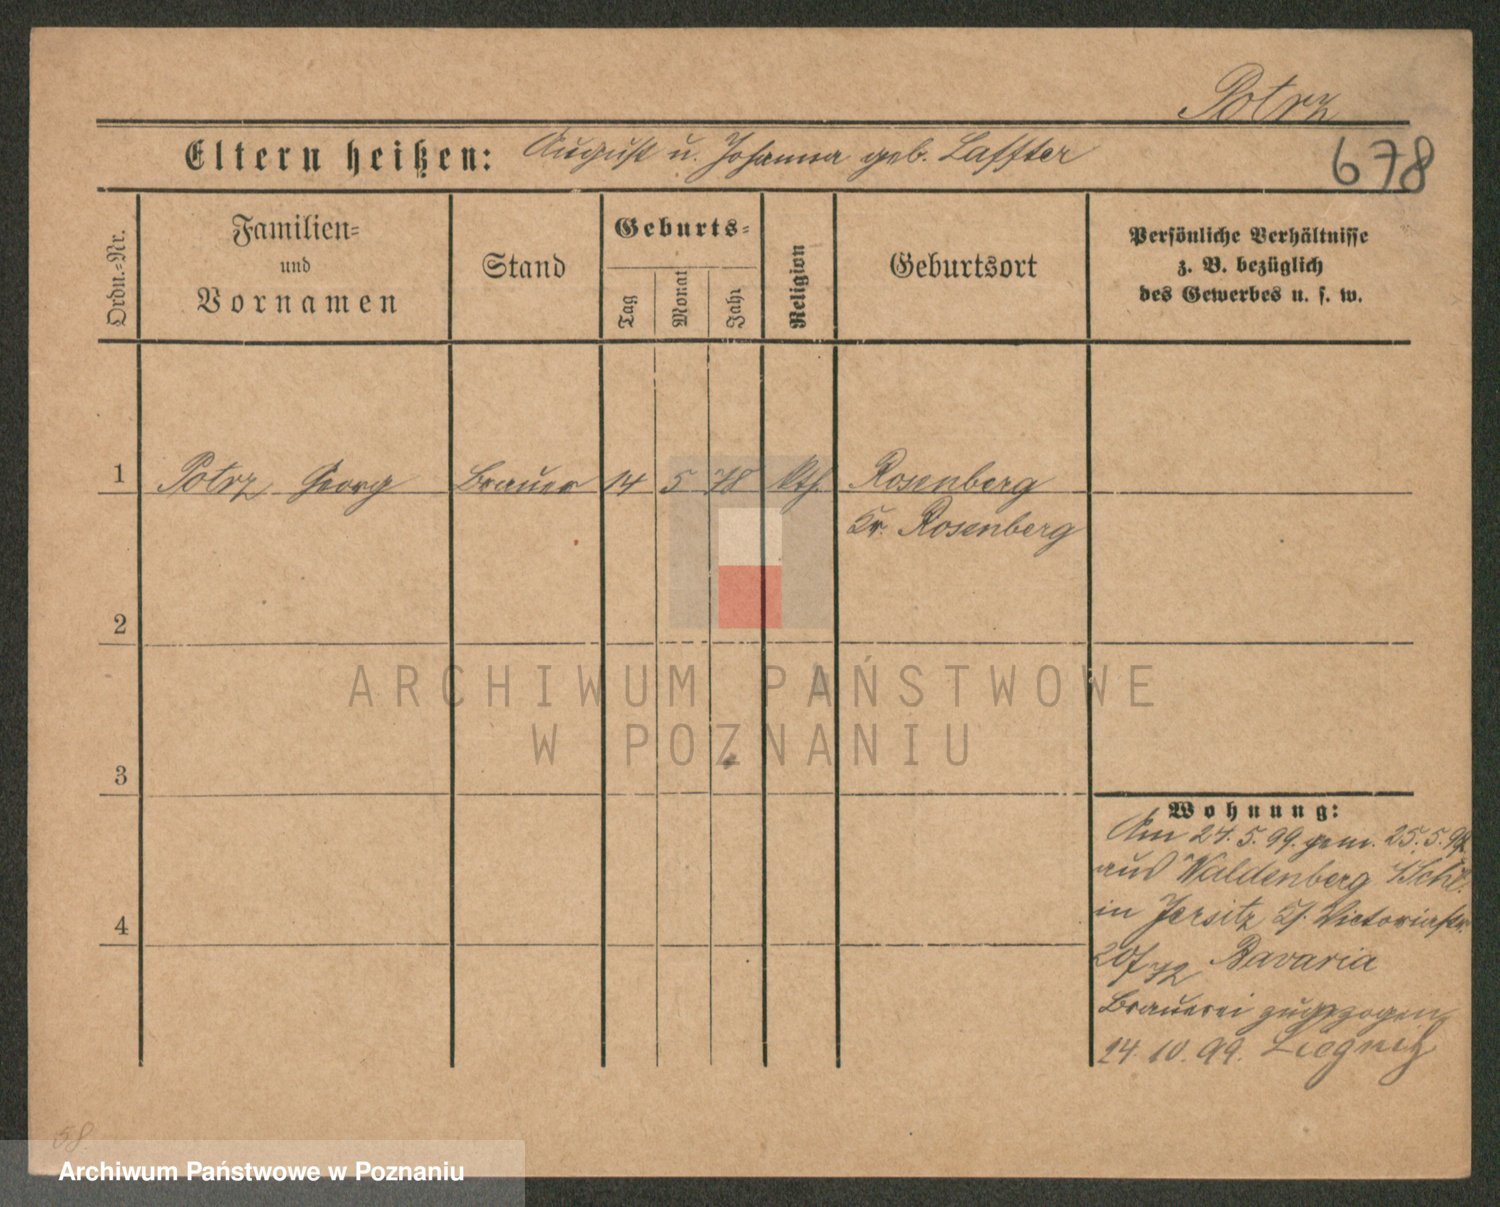 Potrz
Eltern heißen: August u. Johanna geb. Laffter
678
Ordn.=Nr.
Familien=
und
Vornamen
Stand
Geburts=
Tag
Monat
Jahr
Religion
Geburtsort
Persönliche Verhältnisse
z. B. bezüglich
des Gewerbes u. s. w.
1 Potrz Georg Brauer 14 5 78 kth. Rosenberg
Kr. Rosenberg
2
ARCHIWUM PAŃSTWOWE
W POZNANIU
3
Wohnung:
Am 24.5.99. gem. 25.5.99.
aus Waldenberg /Schl.
in Jersitz Victoriastr.
20/ Bavaria
4
Brauerei zugezogen
14.10.99. Liegnitz
58
Archiwum Państwowe w Poznaniu